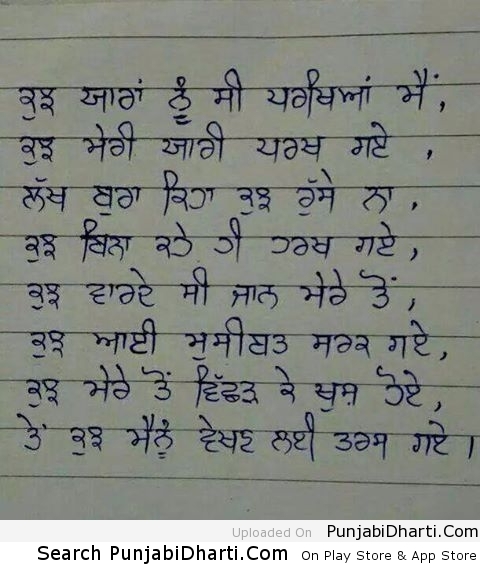 ਕੁਝ ਯਾਰਾਂ ਨੂੰ ਸੀ ਪਰਖਿਆਂ ਮੈਂ,
ਕੁਝ ਮੇਰੀ ਯਾਰੀ ਪਰਖ ਗਏ ,
ਲੱਖ ਬੁਰਾ ਕਿਹਾ ਕੁਝ ਰੁੱਸੇ ਨਾ ,
ਕੁਝ ਬਿਨਾ ਕਹੇ ਹੀ ਹਰਖ ਗਏ,
ਕੁਝ ਵਾਰਦੇ ਸੀ ਜਾਨ ਮੇਰੇ ਤੋਂ ,
ਕੁਝ ਆਈ ਮੁਸੀਬਤ ਸਰਕ ਗਏ,
ਕੁਝ ਮੇਰੇ ਤੋਂ ਵਿੱਛੜ ਕੇ ਖੁਸ਼ ਹੋਏ,
ਤੇਂ ਕੁਝ ਮੈਨੂੰ ਵੇਖਣ ਲਈ ਤਰਸ ਗਏ ।
Uploaded On PunjabiDharti.Com
Search PunjabiDharti.Com On Play Store & App Store